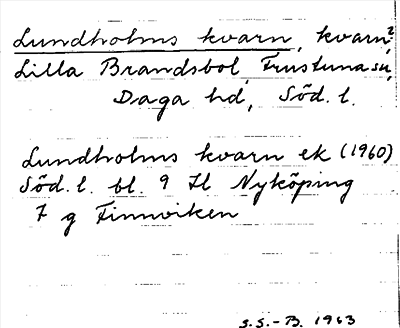 Lundholms kvarn, kvarn,²
Lilla Brandsbol, Frustuna sn,
Daga hd, Söd. l.
Lundholms kvarn ek (1960)
Söd. l. bl. 9 Il Nyköping
7 g Finnviken
S.S.-B. 1963